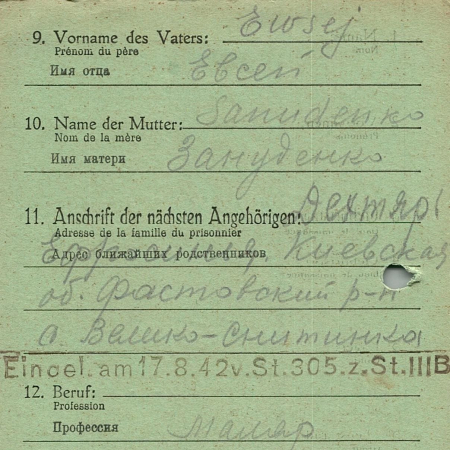 9. Vorname des Vaters: Ewsej
Prénom du père
Имя отца Евсей
10. Name der Mutter: Sanudenko
Nom de la mère
Имя матери Зануденко
11. Anschrift der nächsten Angehörigen: Дехтяр
Adresse de la famille du prisonnier
Адрес ближайших родственников
Ефросиния, Киевская
об. Фастовский р-н
с Велико-Снитинка
Eingel. am 17.8.42 v. St. 305. z. St. III B
12. Beruf:
Profession
Профессия Маляр